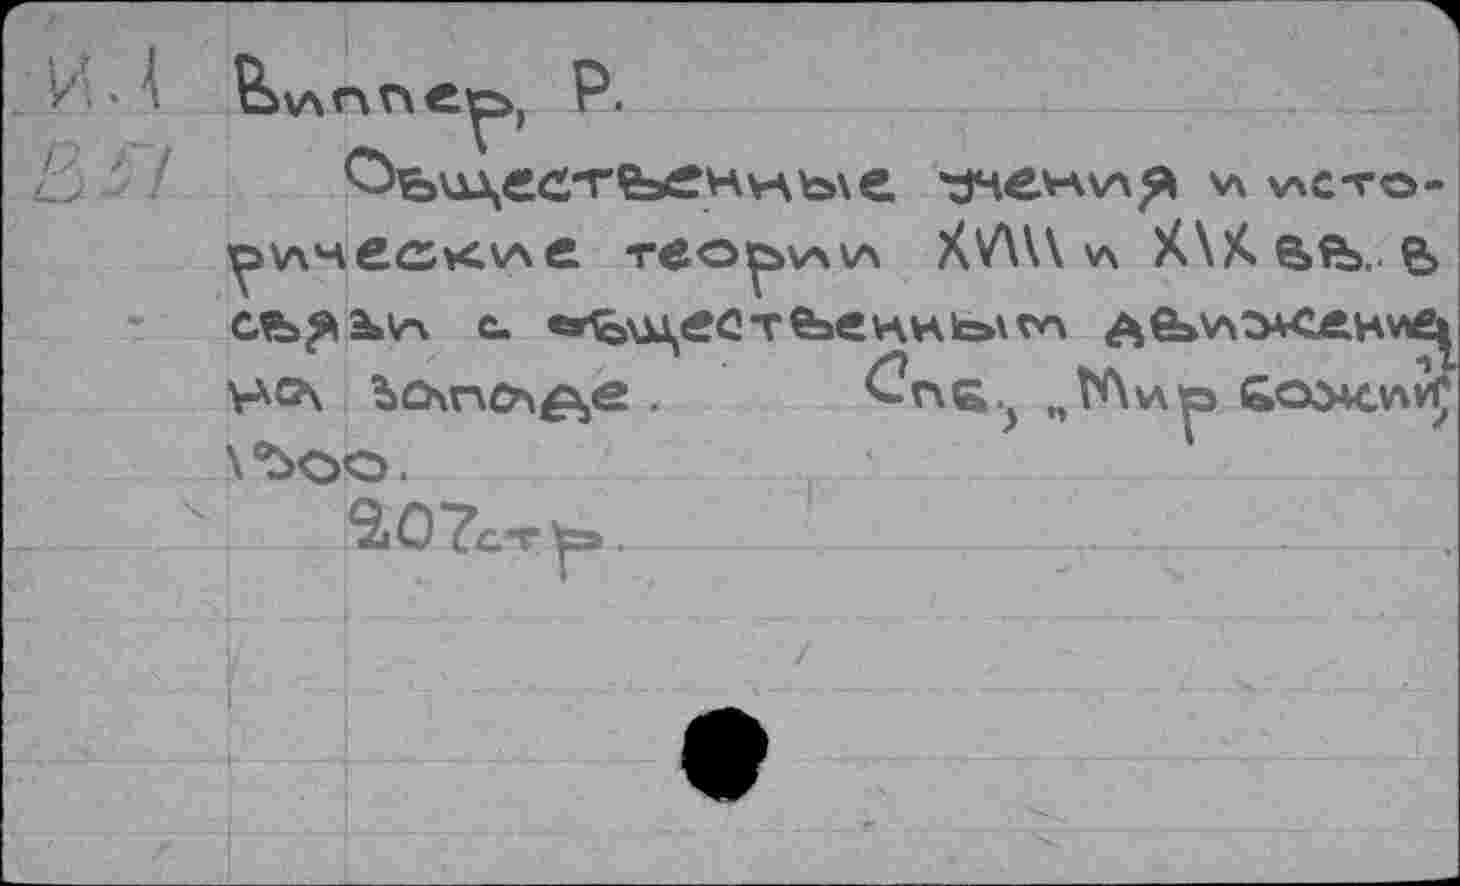 И.1 Виппер, Р.
В51 Общественные учения и исто-
рические теории XVIII и XIX вв. в
связи с общественным движением
на Западе. Спб., „Мир божий",
1900.
207стр.